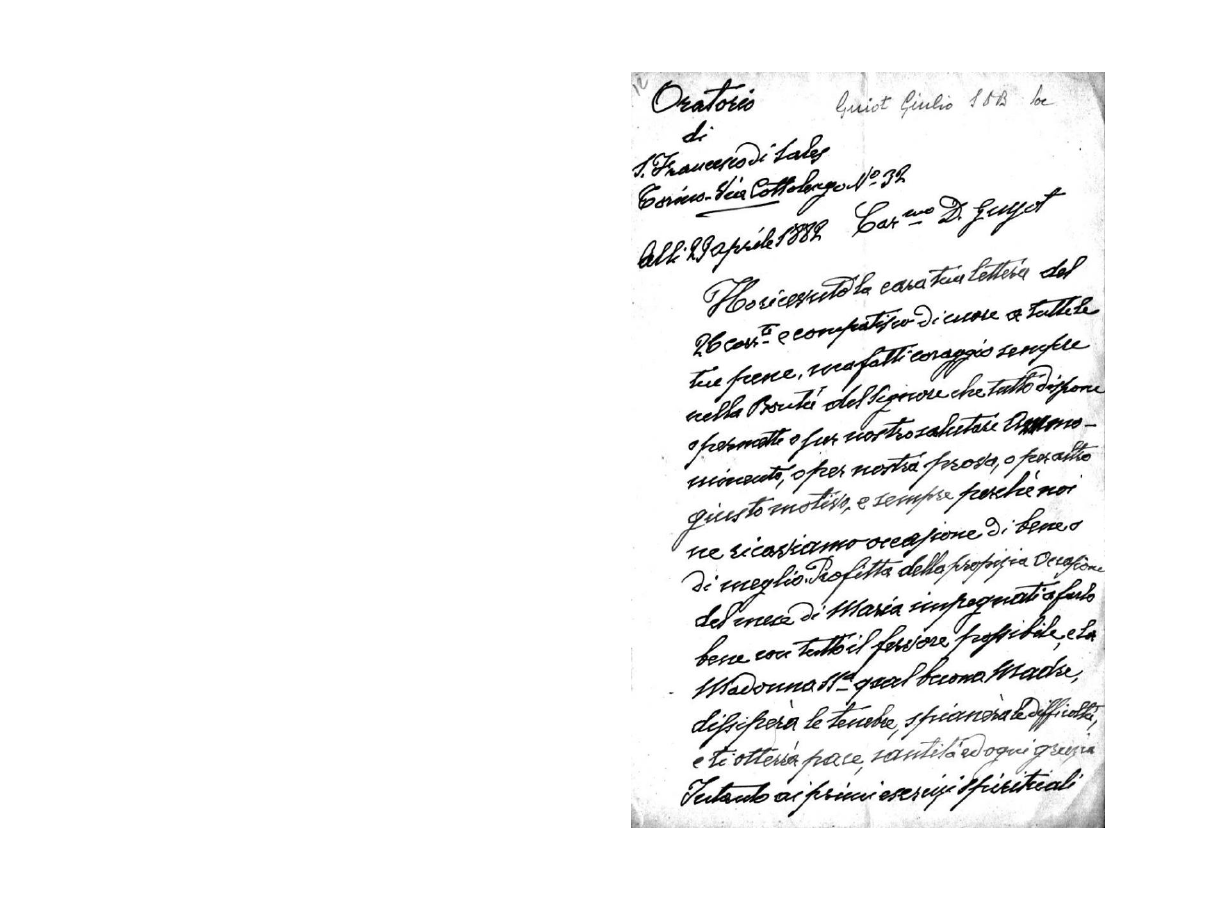 12
Oratorio
Guiot Giulio SDB loc
di
S. Francesco di Sales
Torino - Via Cottolengo N.º 32
Car.mo D. Guyot
alli 29 aprile 1882
Ho ricevuto la cara tua lettera del
26 corr.te e compatisco di cuore a tutte le
tue pene, ma fatti coraggio sempre
nella Bontà del Signore che tutto dispone
o permette o per nostro salutare
o per nostra prova, o per altro
giusto motivo, e sempre perchè noi
ne ricaviamo occasione di bene o
di meglio. Profitta della propizia Occasione
del mese di Maria impegnati a farlo
bene con tutto il fervore possibile, e la
Madonna SS.a qual buona Madre,
dissiperà le tenebre, spianerà le difficoltà,
e ti otterrà pace, santità ed ogni grazia
Intanto ai primi esercizi Spirituali